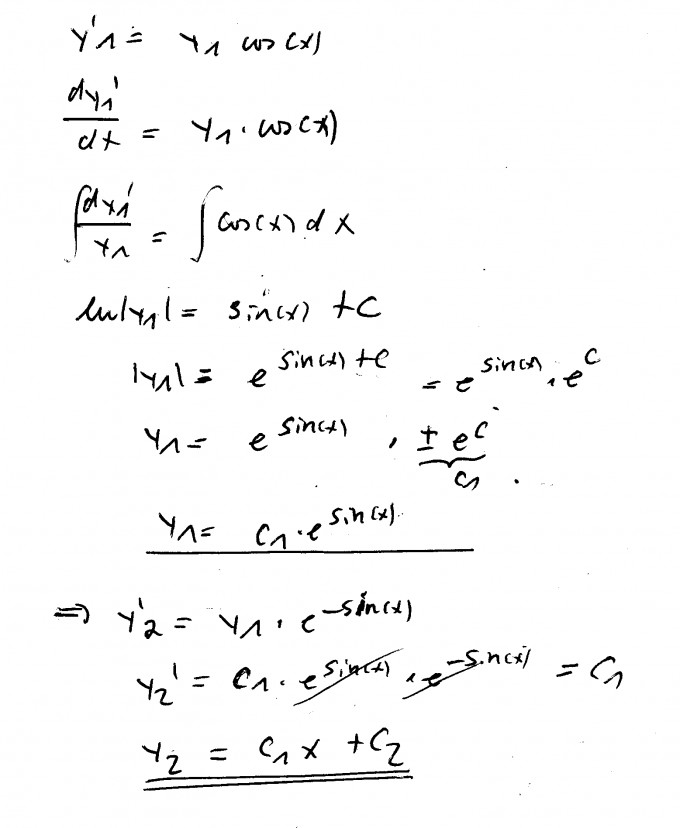 y'1 = y1 cos(x)
dy1' / dx = y1 · cos(x)
∫ dy1' / y1 = ∫ cos(x) dx
ln|y1| = sin(x) + C
|y1| = e^(sin(x) + C) = e^(sin(x)) · e^C
y1 = e^(sin(x)) · ± e^C
C1
y1 = C1 · e^(sin(x))
⇒ y'2 = y1 · e^(-sin(x))
y2' = C1 · e^(sin(x)) · e^(-sin(x)) = C1
y2 = C1 x + C2